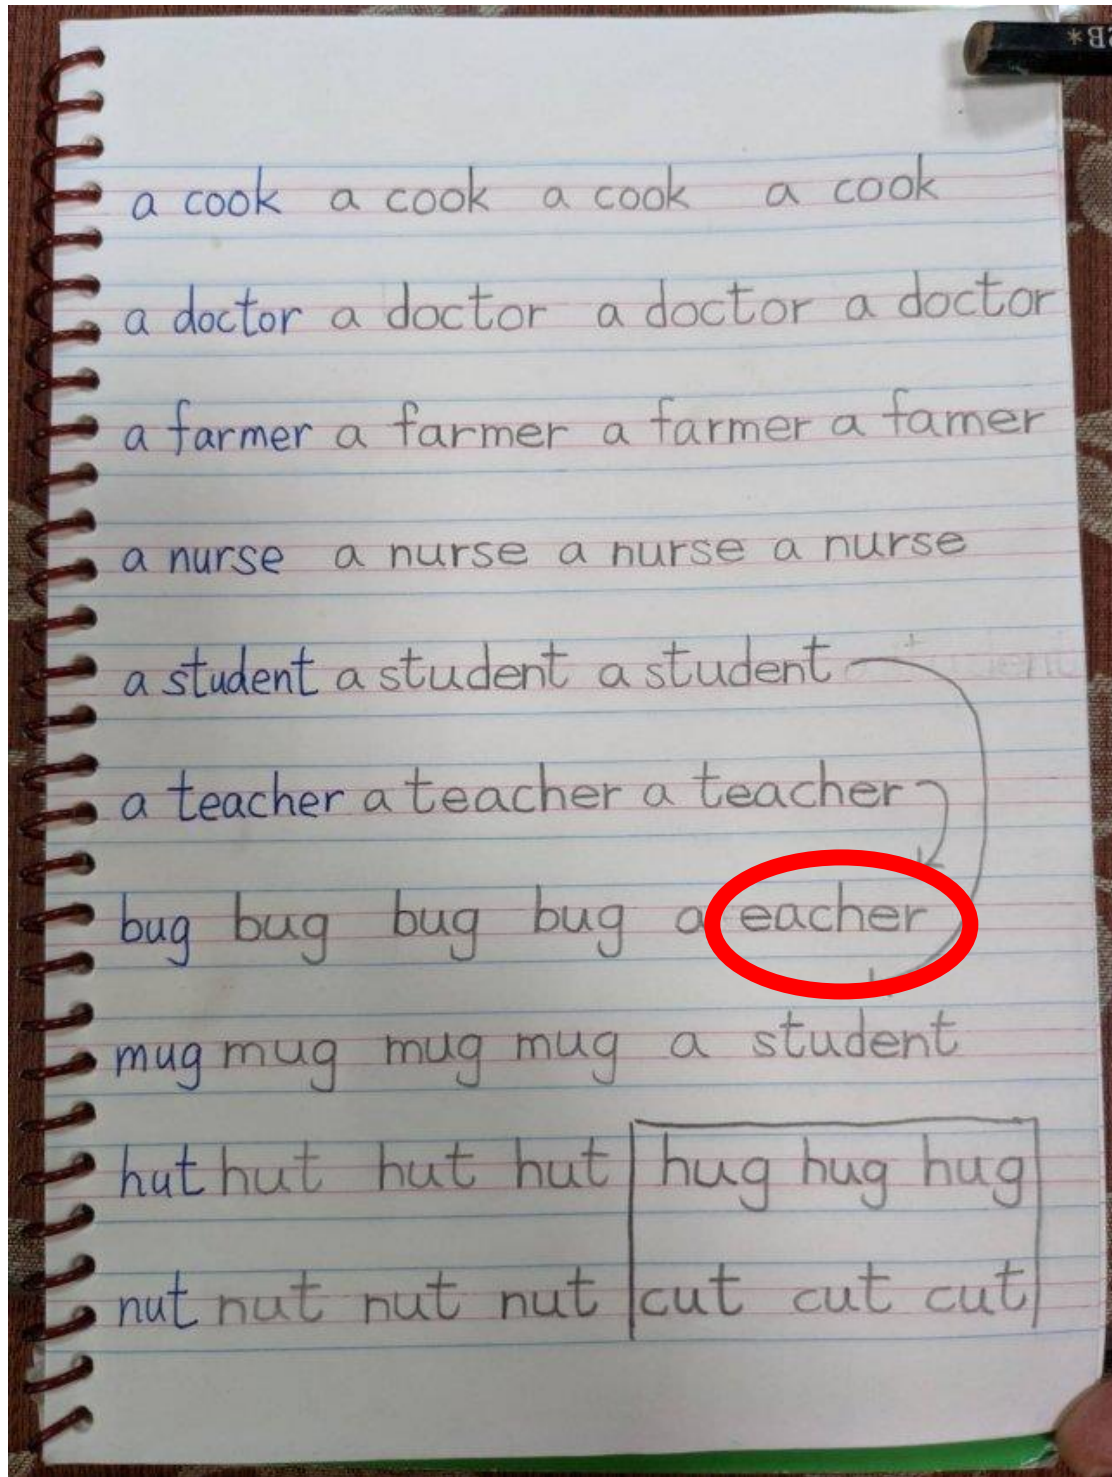 B*
a cook a cook a cook a cook
a doctor a doctor a doctor a doctor
a farmer a farmer a farmer a famer
a nurse a nurse a nurse a nurse
a student a student a student
a teacher a teacher a teacher
bug bug bug bug a eacher
mug mug mug mug a student
hut hut hut hut hug hug hug
nut nut nut nut cut cut cut